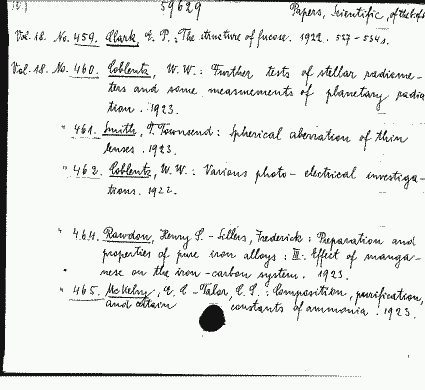 59629
Papers, Scientific, of the
Vol. 18. No. 459. Clark, E. P.: The structure of fucose. 1922. 527-534 s.
Vol. 18. No. 460. Coblentz, W. W.: Further tests of stellar radiome-
ters and some measurements of planetary radia
tion. 1923.
" 461. Smith, T. Townsend: Spherical aberration of thin
lenses. 1923.
" 462. Coblentz, W. W.: Various photo-electrical investiga-
tions. 1922.
" 464. Rawdon, Henry S. - Sillers, Frederick: Preparation and
properties of pure iron alloys: III. Effect of manga-
nese on the iron-carbon system. 1923.
" 465. McKelvy, E. C. - Talor, C. S.: Composition, purification,
and certain constants of ammonia. 1923.